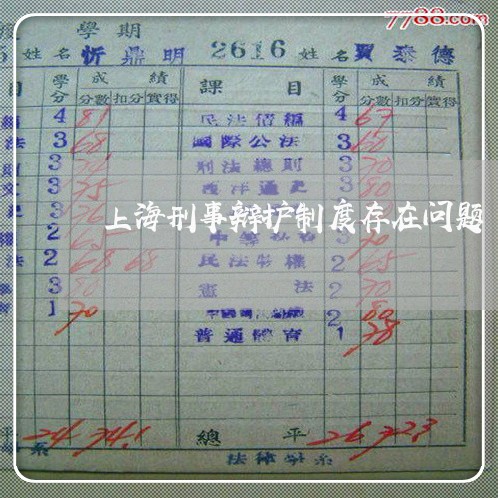 7788.com
學期
5 姓名 忻鼎明 2616 姓名 賈泰德
目 學分 成績 課目 學分 成績
分數 扣分 實得 分數 扣分 實得
4 81 民法債編 4 67
法 3 68 國際公法 3
3 刑法總則 3 70
3 75 西洋通史 3 80
上海刑事辩护制度存在问题
2 3 70
法 2 68 68 民法物權 2 65
3 80 憲法 2 70
1 70 2 80
普通體育 1 78
平 24 74.1 總平 26 723
系 法律學系